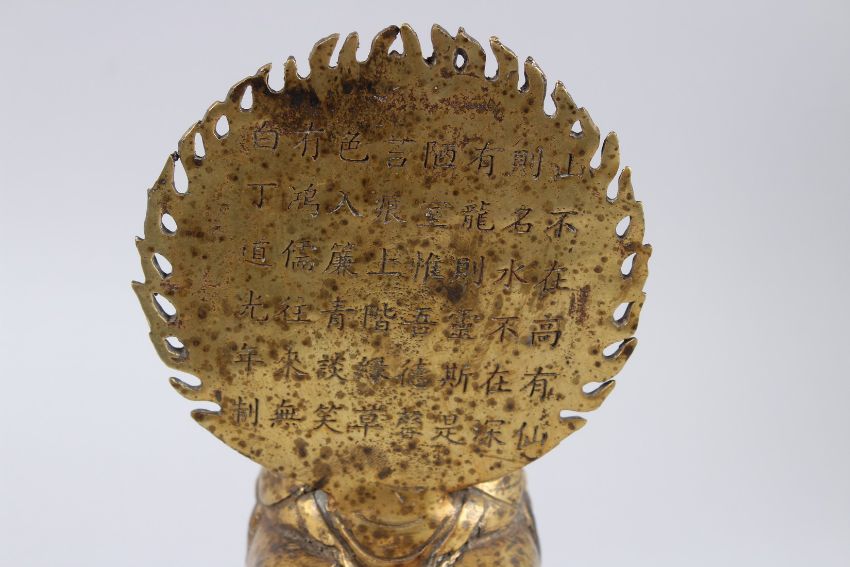 山不在高有仙
則名水不在深
有龍則靈斯是
陋室惟吾德馨
苔痕上階緑草
色入簾青談笑
有鴻儒往来無
白丁道光年制